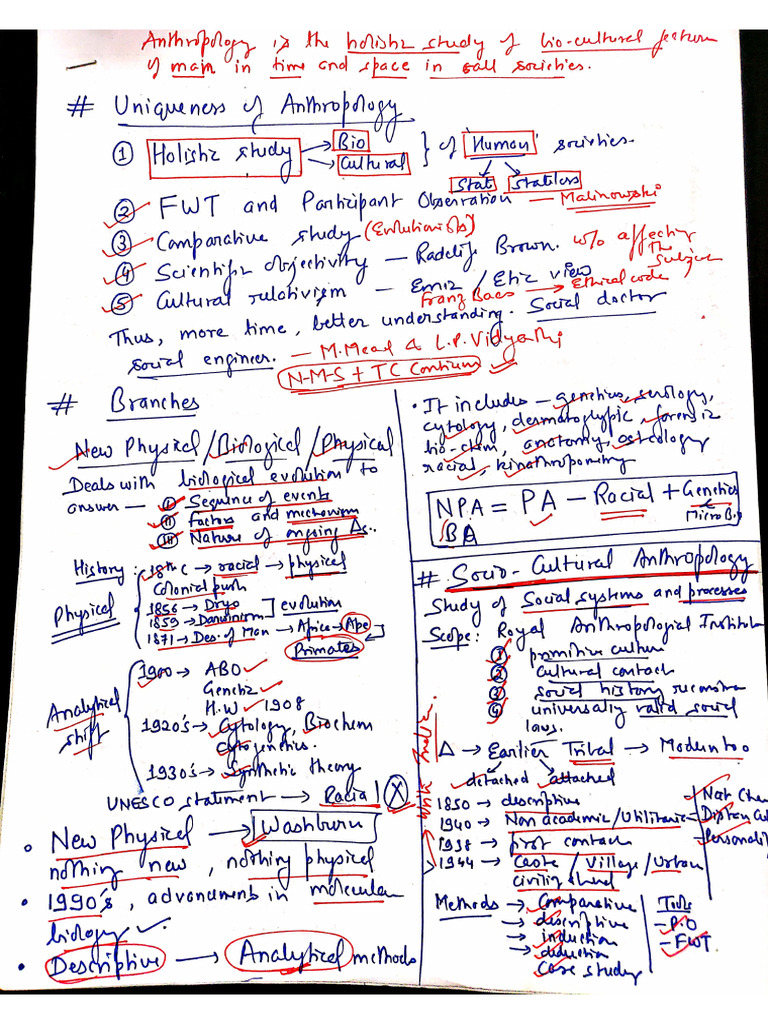 Anthropology is the holistic study of bio-cultural feature
of man in time and space in all societies.
# Uniqueness of Anthropology
① Holistic study → Bio → Cultural } of 'Human' societies.
Stat Statless
② FWT and Participant Observation — Malinowski
③ Comparative study (Evolutionists)
④ Scientific objectivity — Radcliffe Brown. w/o affecting the Subject
⑤ Cultural relativism — Emic / Etic view
Franz Boas → Ethical code
Thus, more time, better understanding. Social doctor
social engineer. — M. Mead & L.P. Vidyarthi
N-M-S + TC Contium
# Branches
New Physical / Biological / Physical
Deals with biological evolution to
answer — ⓘ Sequence of events
ⓘⓘ factors and mechanism
ⓘⓘⓘ Nature of ongoing As..
History : 18th C → racial → physical
Colonial push
Physical
1856 → Dryo
1859 → Darwinism ] evolution
1871 → Des. of Man → Africa → Ape
Primates
Analytical shift
1900 → ABO
Genetic
H.W → 1908
1920's → Cytology, Biochem
Cytogenetics.
1930's → Synthetic theory
UNESCO statement → Racial X
• New Physical → Washburn
nothing new, nothing physical
• 1990's, advancement in molecular
biology
• Descriptive → Analytical methods
• It includes — genetics, serology,
cytology, dermatoglypic, forensic
bio-chem, anatomy, osteology
racial, kinathropometry
NPA = PA — Racial + Genetics
BA
MicroBio
# Socio-Cultural Anthropology
Study of Social systems and processes
Scope: Royal Anthropological Institute
① primitive culture
② cultural contact
③ social history reconstruc
④ universally valid social
laws.
Δ → Earlier Tribal → Modern too
detached attached
1850 → descriptive
1940 → Non academic / Utilitarian
Nat Char
Distan Cul
Personali
1938 → first contact
1944 → Caste / Village / Urban
civiliz
Methods → Comparative
→ descriptive
→ induction
→ deduction
Case study
Tools
— P.O
— FWT